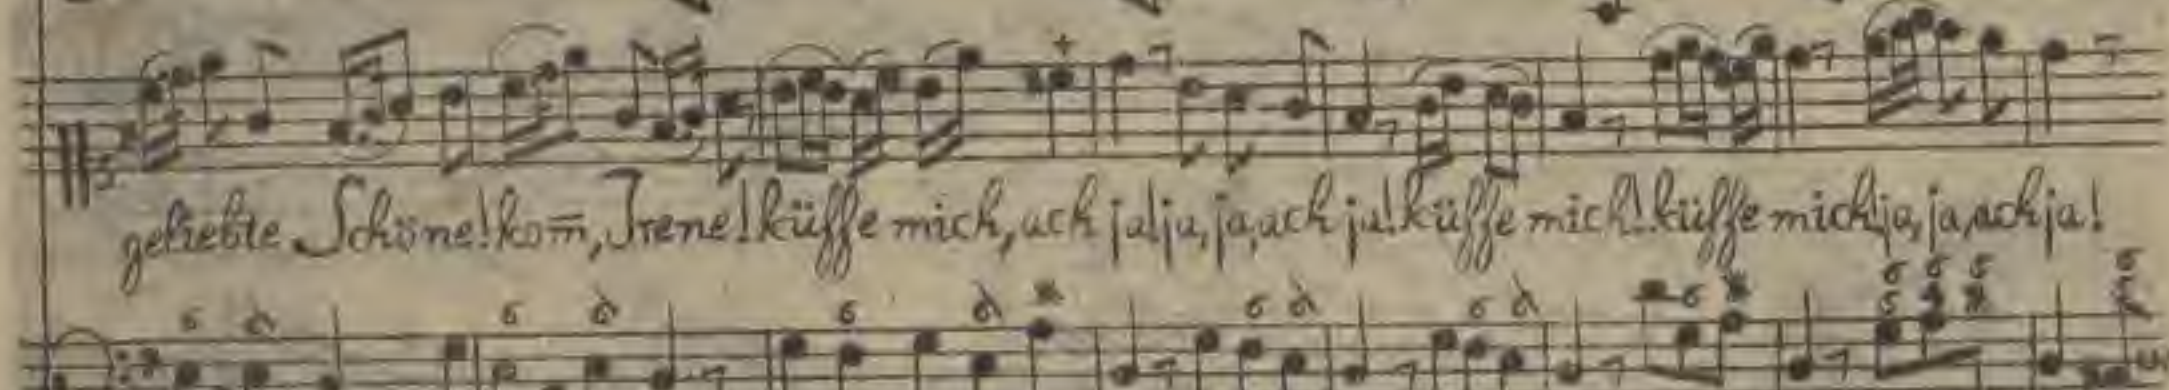 geliebte Schöne! kom̅, Irene! küsse mich, ach ja! ja, ja, ach ja! küsse mich! küsse mich! ja, ja, ach ja!
6 6 6 6 6 6 6 6 6 6